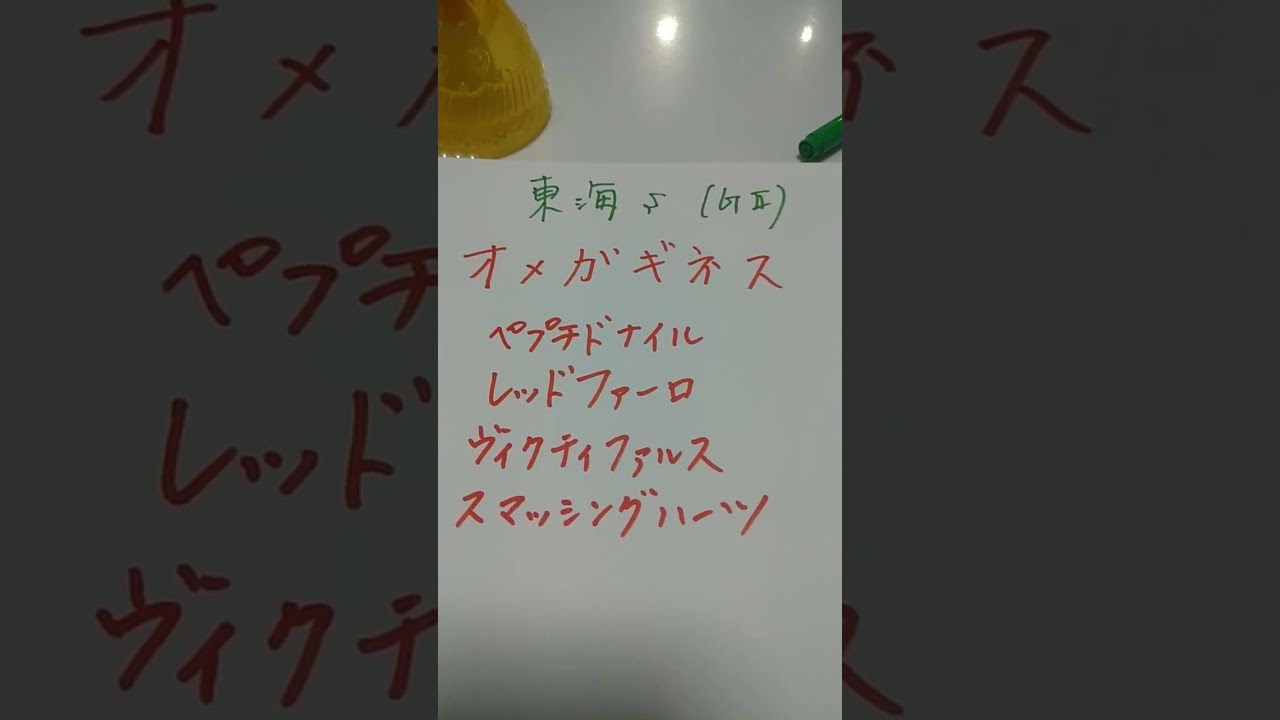 東海S (GII)
オメガギネス
ペプチドナイル
レッドファーロ
ヴィクティファルス
スマッシングハーツ